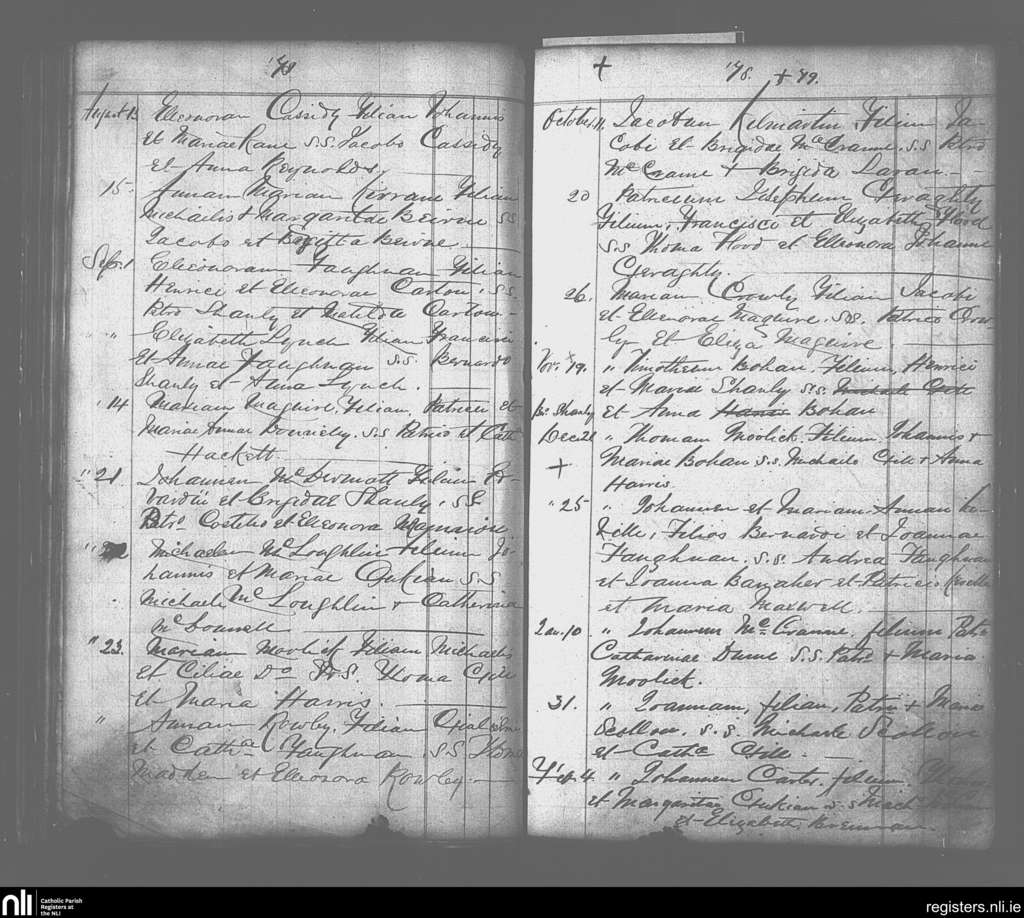 '78
August 13 Eleonoram Cassidy filiam Johannis
et Mariae Kane S.S. Jacobo Cassidy
et Anna Reynolds
15. Annam Mariam Kerrane filiam
Michaelis + Margaritae Beirne SS
Jacobo et Brigitta Beirne
Sept. 1 Eleonoram Faughnan filiam
Henrici et Eleonorae Carton. S.S.
Petro Shanly et Matilda Carton
" Elizabeth Lynch filiam Francisci
et Annae Faughnan S.S. Bernardo
Shanly et Anna Lynch.
"14 Mariam Maguire, filiam, Patricii et
Mariae Annae Donnelly. S.S. Patricio et Cath
Hackett
"21 Johannem McDermott filium
et Brigidae Shanly. S.S.
Petro Costello et Eleonora
" Michaelem McLoughlin filium Jo-
hannis et Mariae S.S
Michaele McLoughlin + Catherina
McDonnell
"23. Mariam filiam Michaelis
et Ciliae Do S.S. Thoma Gill
et Maria Harris.
" Annam Rowley, filiam
et Cathae Faughnan. S.S.
Madden et Eleonora Rowley.
+ '78. + 79.
October 11. Jacobum Kilmartin, filium Ja-
cobi et Brigidae McCranne. S.S Petro
McCranne + Brigida Lavan.
20 Patricium Josephum Geraghty
filium, Francisco et Elizabeth Flood
S.S Thoma Flood et Eleonora Johanne
Geraghty.
26. Mariam Crowly filiam Jacobi
et Elleonorae Maguire. S.S. Patrico Crow
ly et Eliza Maguire.
Nov. 19. " Timotheum Bohan, filium, Henrici
et Maria Shanly S.S. Michaele Gill
Shanly et Anna Harris Bohan
Dec 21 " Thomam Moolick. filium Johannis +
+ Mariae Bohan S.S. Michaele Gill + Anna
Harris
"25 " Johannem et Mariam Annam
filios Bernardi et Joannae
Faughnan. S.S. Andrea Faughnan
et Joanna et Patricio
et Maria Maxwell.
Jan. 10 " Johannem McCranne. filium Patri
Catharinae Dunne S.S. Patr + Maria
Moolick.
31. " Joannam, filiam, Patricii + Maria
Scollan. S.S. Michaele Scollan
et Cathe Gill.
Feb. 4 " Johannem Carty. filium
et Margaritae S.S
et Elizabeth, Brennan.
nli Catholic Parish
Registers at
the NLI
registers.nli.ie